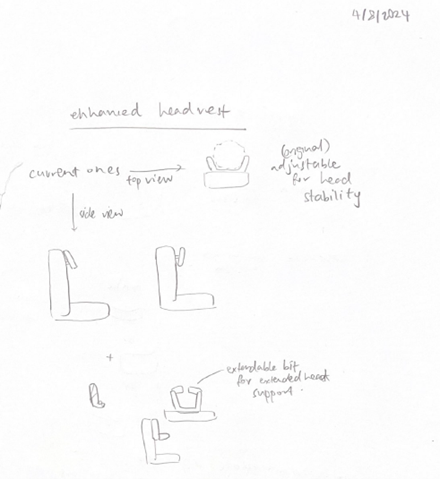 4/8/2024
enhanced headrest
current ones
top view
(original)
adjustable
for head
stability
side view
+
extendable bit
for extended head
support.